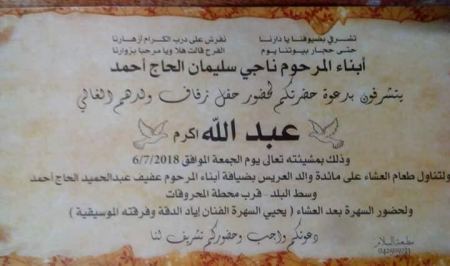 تشرفي بضيوفنا يا دارنا
نفرش على درب الكرام أزهارنا
حتى حجار بيوتنا يوم
الفرح قالت هلا ويا مرحبا بزوارنا
أبناء المرحوم ناجي سليمان الحاج أحمد
يتشرفون بدعوة حضرتكم لحضور حفل زفاف ولدهم الغالي
عبد الله اكرم
وذلك بمشيئته تعالى يوم الجمعة الموافق 6/7/2018
ولتناول طعام العشاء على مائدة والد العريس بضيافة أبناء المرحوم عفيف عبدالحميد الحاج أحمد
وسط البلد - قرب محطة المحروقات
ولحضور السهرة بعد العشاء ( يحيي السهرة الفنان إياد الدقة وفرقته الموسيقية )
دعوتكم واجب وحضوركم تشريف لنا
مطبعة السلام